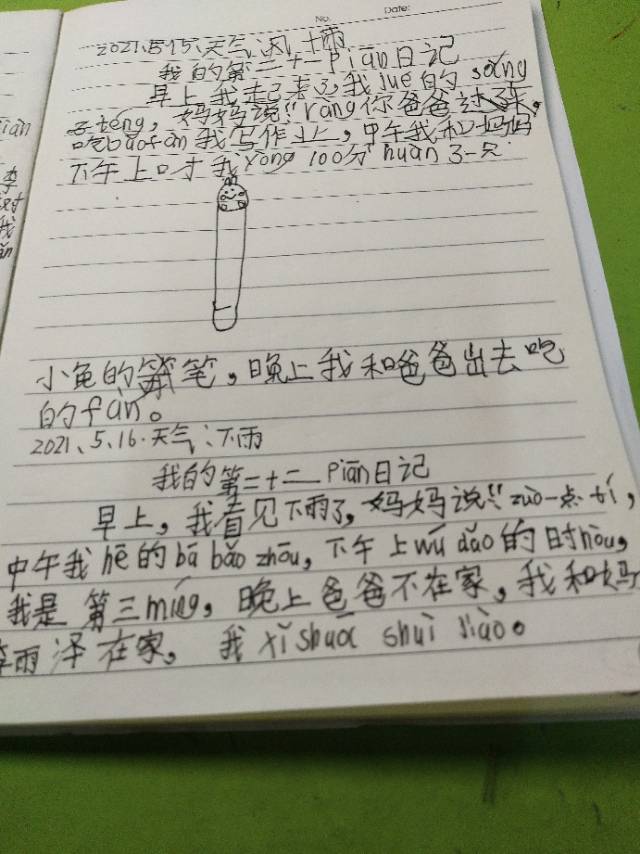 No. Date:
2021.5.15、天气:风 十雨
我的第二十一piān日记
早上我起来了,我jué的sǎng
子téng,妈妈说:"ràng你爸爸过来,
吃bǎofàn我写作业,中午我和妈妈
下午上口才我yòng 100分huàn了一只
小兔的笔,晚上我和爸爸出去吃
的fàn。
2021、5、16.天气:下雨
我的第二十二piān日记
早上,我看见下雨了,妈妈说:"zuò一点tí,
中午我hē的bā bǎo zhōu,下午上wǔ dǎo的时hòu,
我是第三míng,晚上爸爸不在家,我和妈
李雨泽在家,我xǐ shuā shuì jiào。
iān
李
我